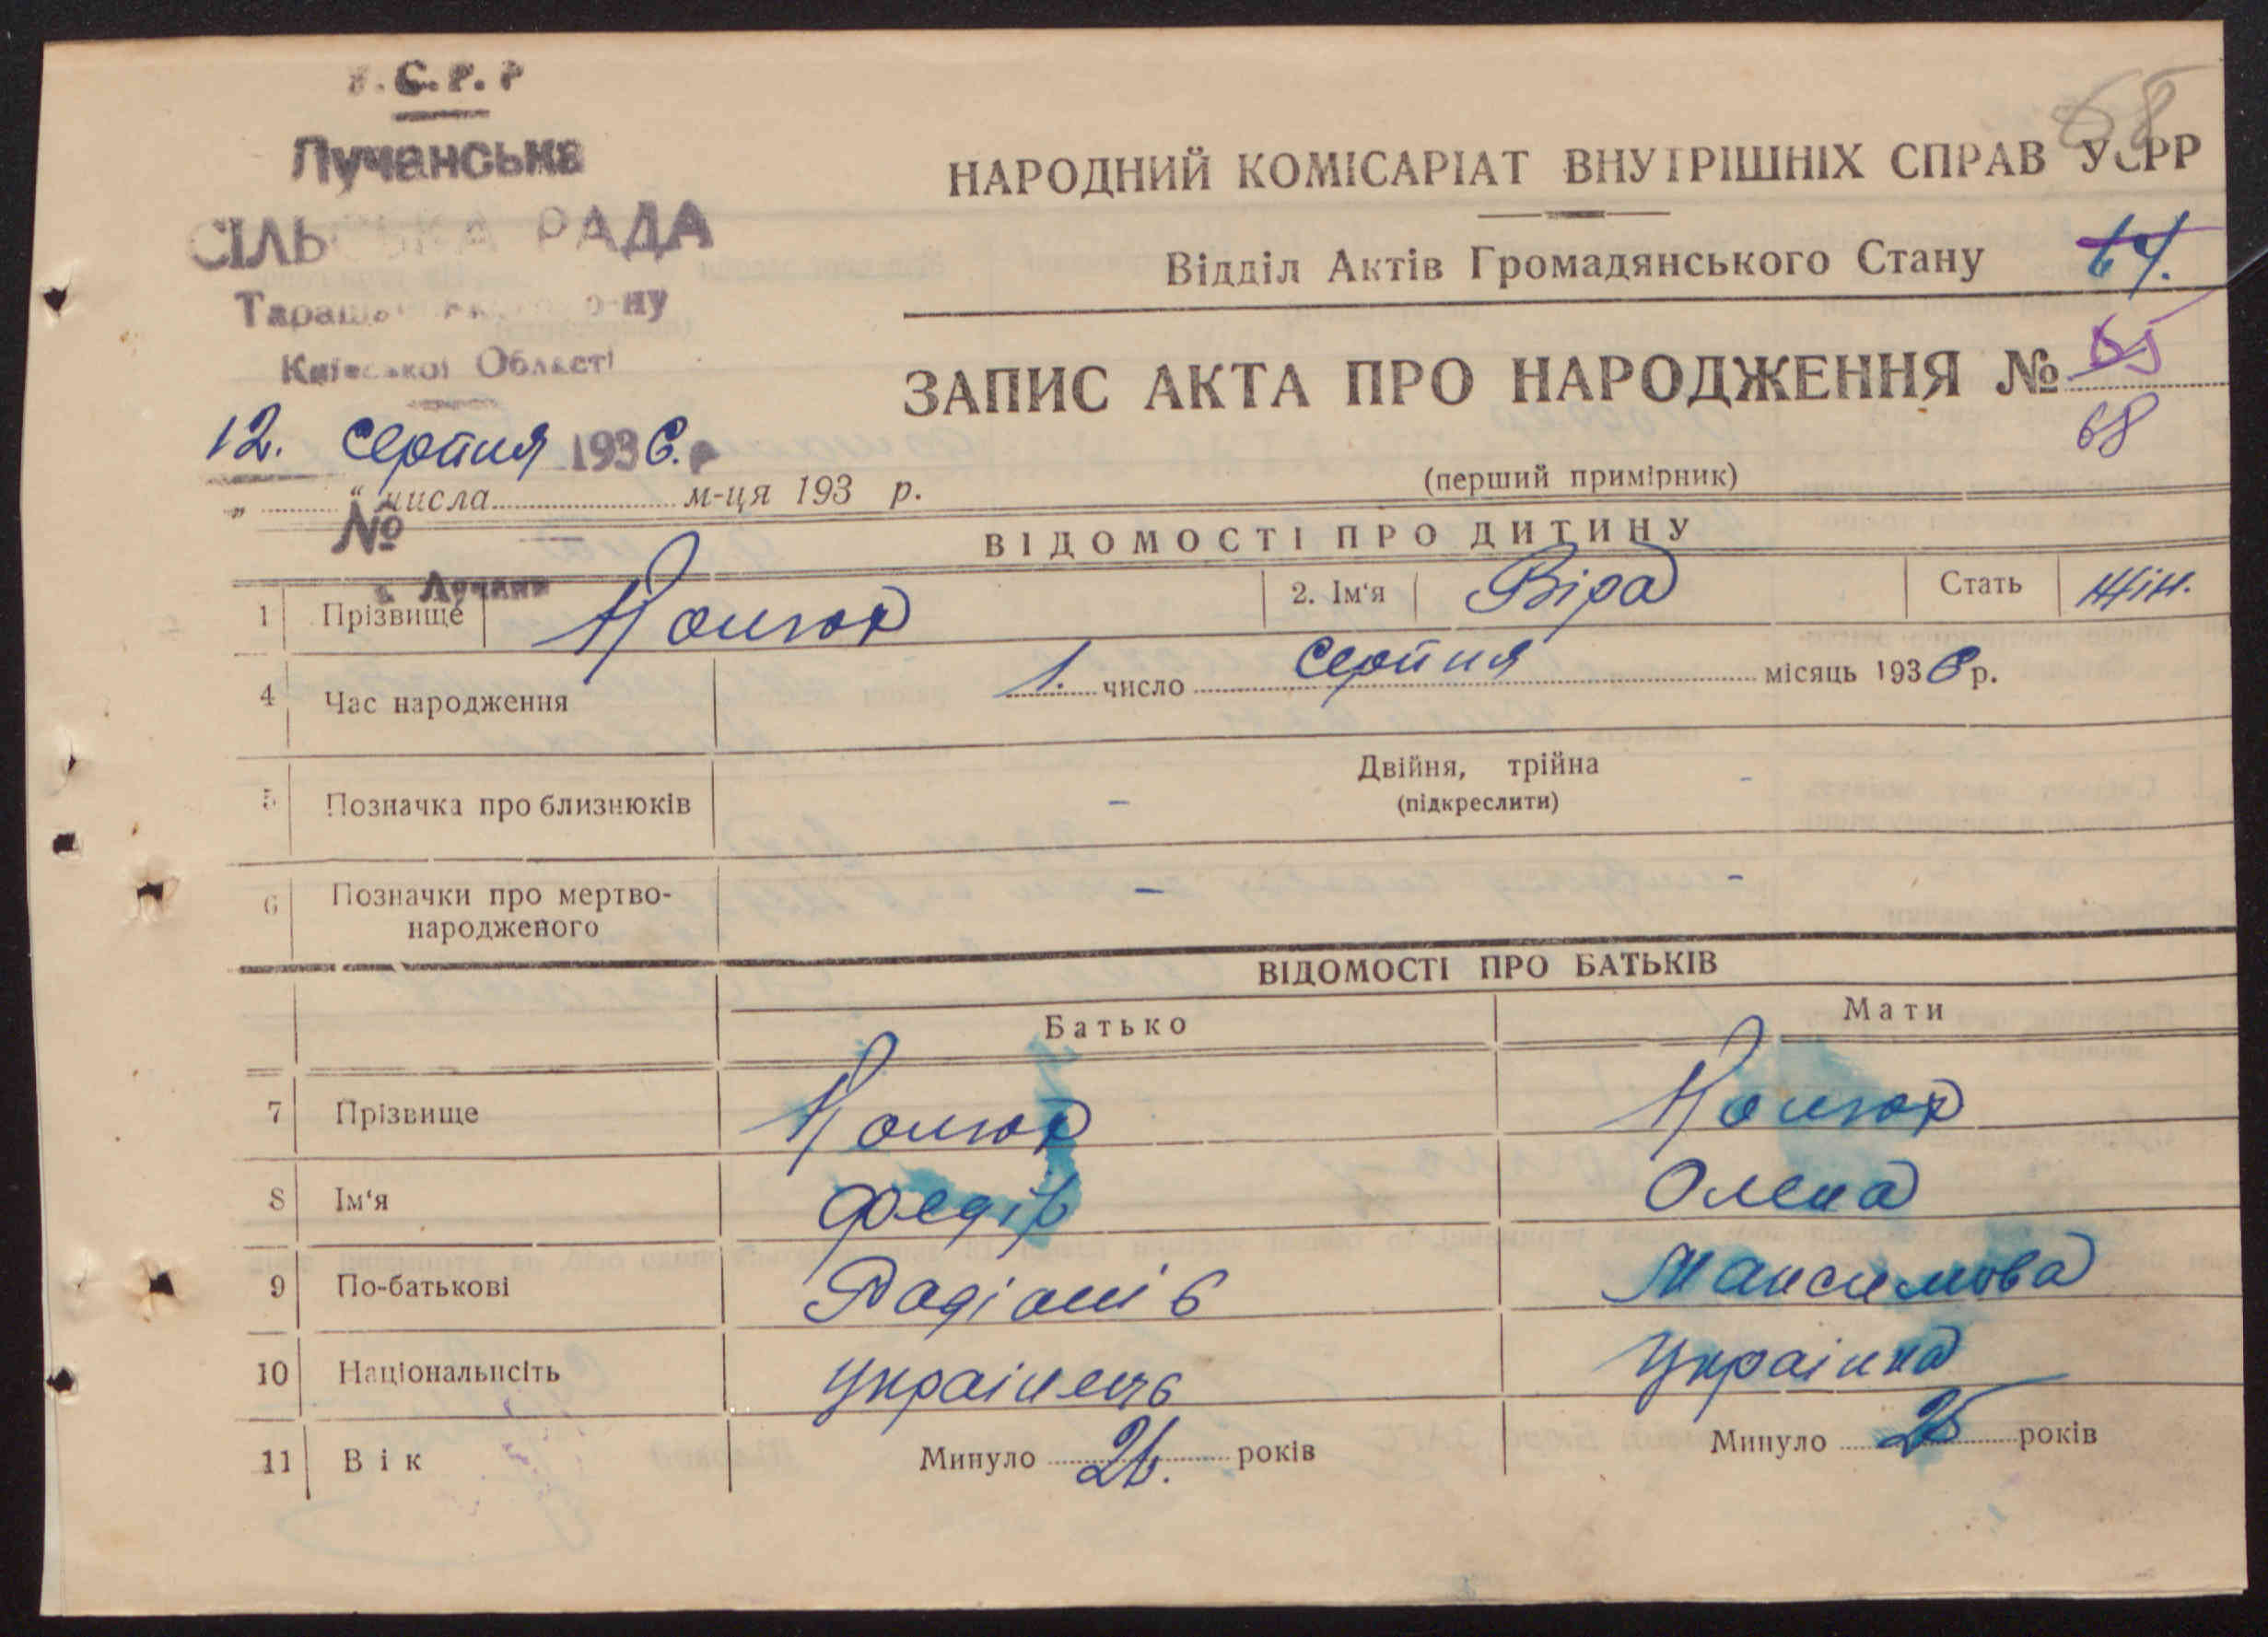 У.С.Р.Р
Лучанська
СІЛЬСЬКА РАДА
Таращанського р-ну
Київської Області
12. серпня 1936.р
„ “ числа м-ця 193 р.
№
с. Лучани
68
НАРОДНИЙ КОМІСАРІАТ ВНУТРІШНІХ СПРАВ УСРР
Відділ Актів Громадянського Стану
64.
ЗАПИС АКТА ПРО НАРОДЖЕННЯ № 65
68
(перший примірник)
ВІДОМОСТІ ПРО ДИТИНУ
1 Прізвище 2. Ім‘я Віра Стать жін.
4 Час народження 1. число серпня місяць 1936 р.
5 Позначка про близнюків - Двійня, трійна -
(підкреслити)
6 Позначки про мертво-
народженого - -
ВІДОМОСТІ ПРО БАТЬКІВ
Батько Мати
7 Прізвище
8 Ім‘я Федір Олена
9 По-батькові Максимова
10 Національність українець Українка
11 Вік Минуло 26. років Минуло 25 років